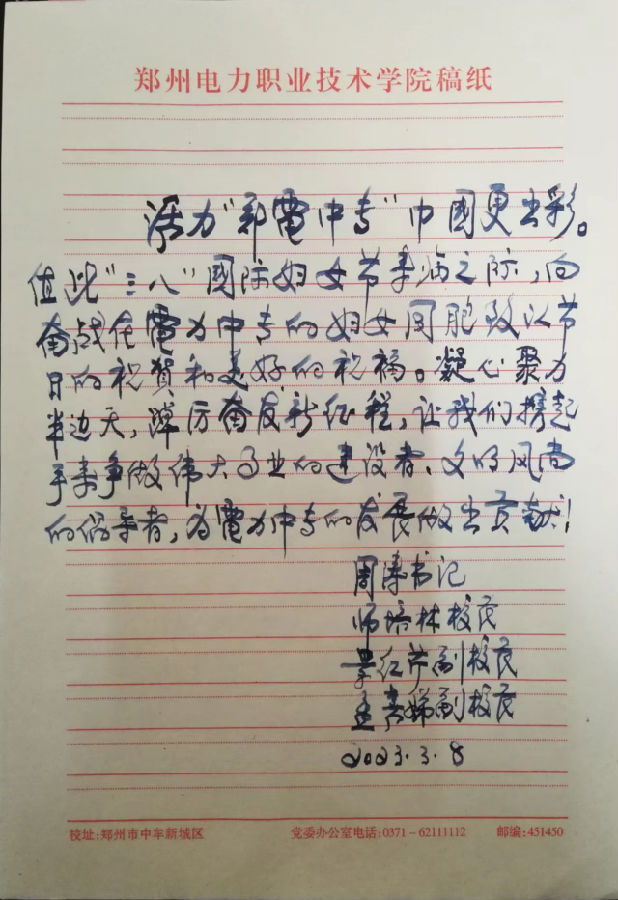 郑州电力职业技术学院稿纸
活力“郑電中专”巾國更出彩。
值此“三八”國际妇女节来临之际,向
奋战在電力中专的妇女同胞致以节
日的祝賀和美好的祝福。凝心聚力
半边天,踔厉奋发新征程,让我们携起
手来争做伟大事业的建设者、文明风尚
的倡导者,为電力中专的发展做出贡献!
周涛书记
师培林校长
景红芹副校长
副校长
2023.3.8
校址:郑州市中牟新城区 党委办公室电话:0371-62111112 邮编:451450